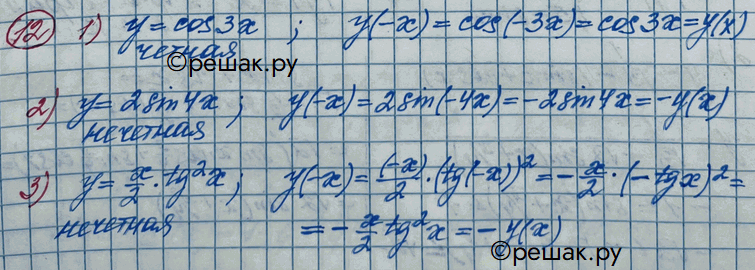 12 1) y = cos3x ; y(-x) = cos(-3x) = cos3x = y(x)
четная
©решак.ру
2) y = 2sin4x ; y(-x) = 2sin(-4x) = -2sin4x = -y(x)
нечетная
3) y = x/2 · tg²x ; y(-x) = (-x)/2 · (tg(-x))² = -x/2 · (-tgx)² =
нечетная = -x/2 tg²x = -y(x)
©решак.ру